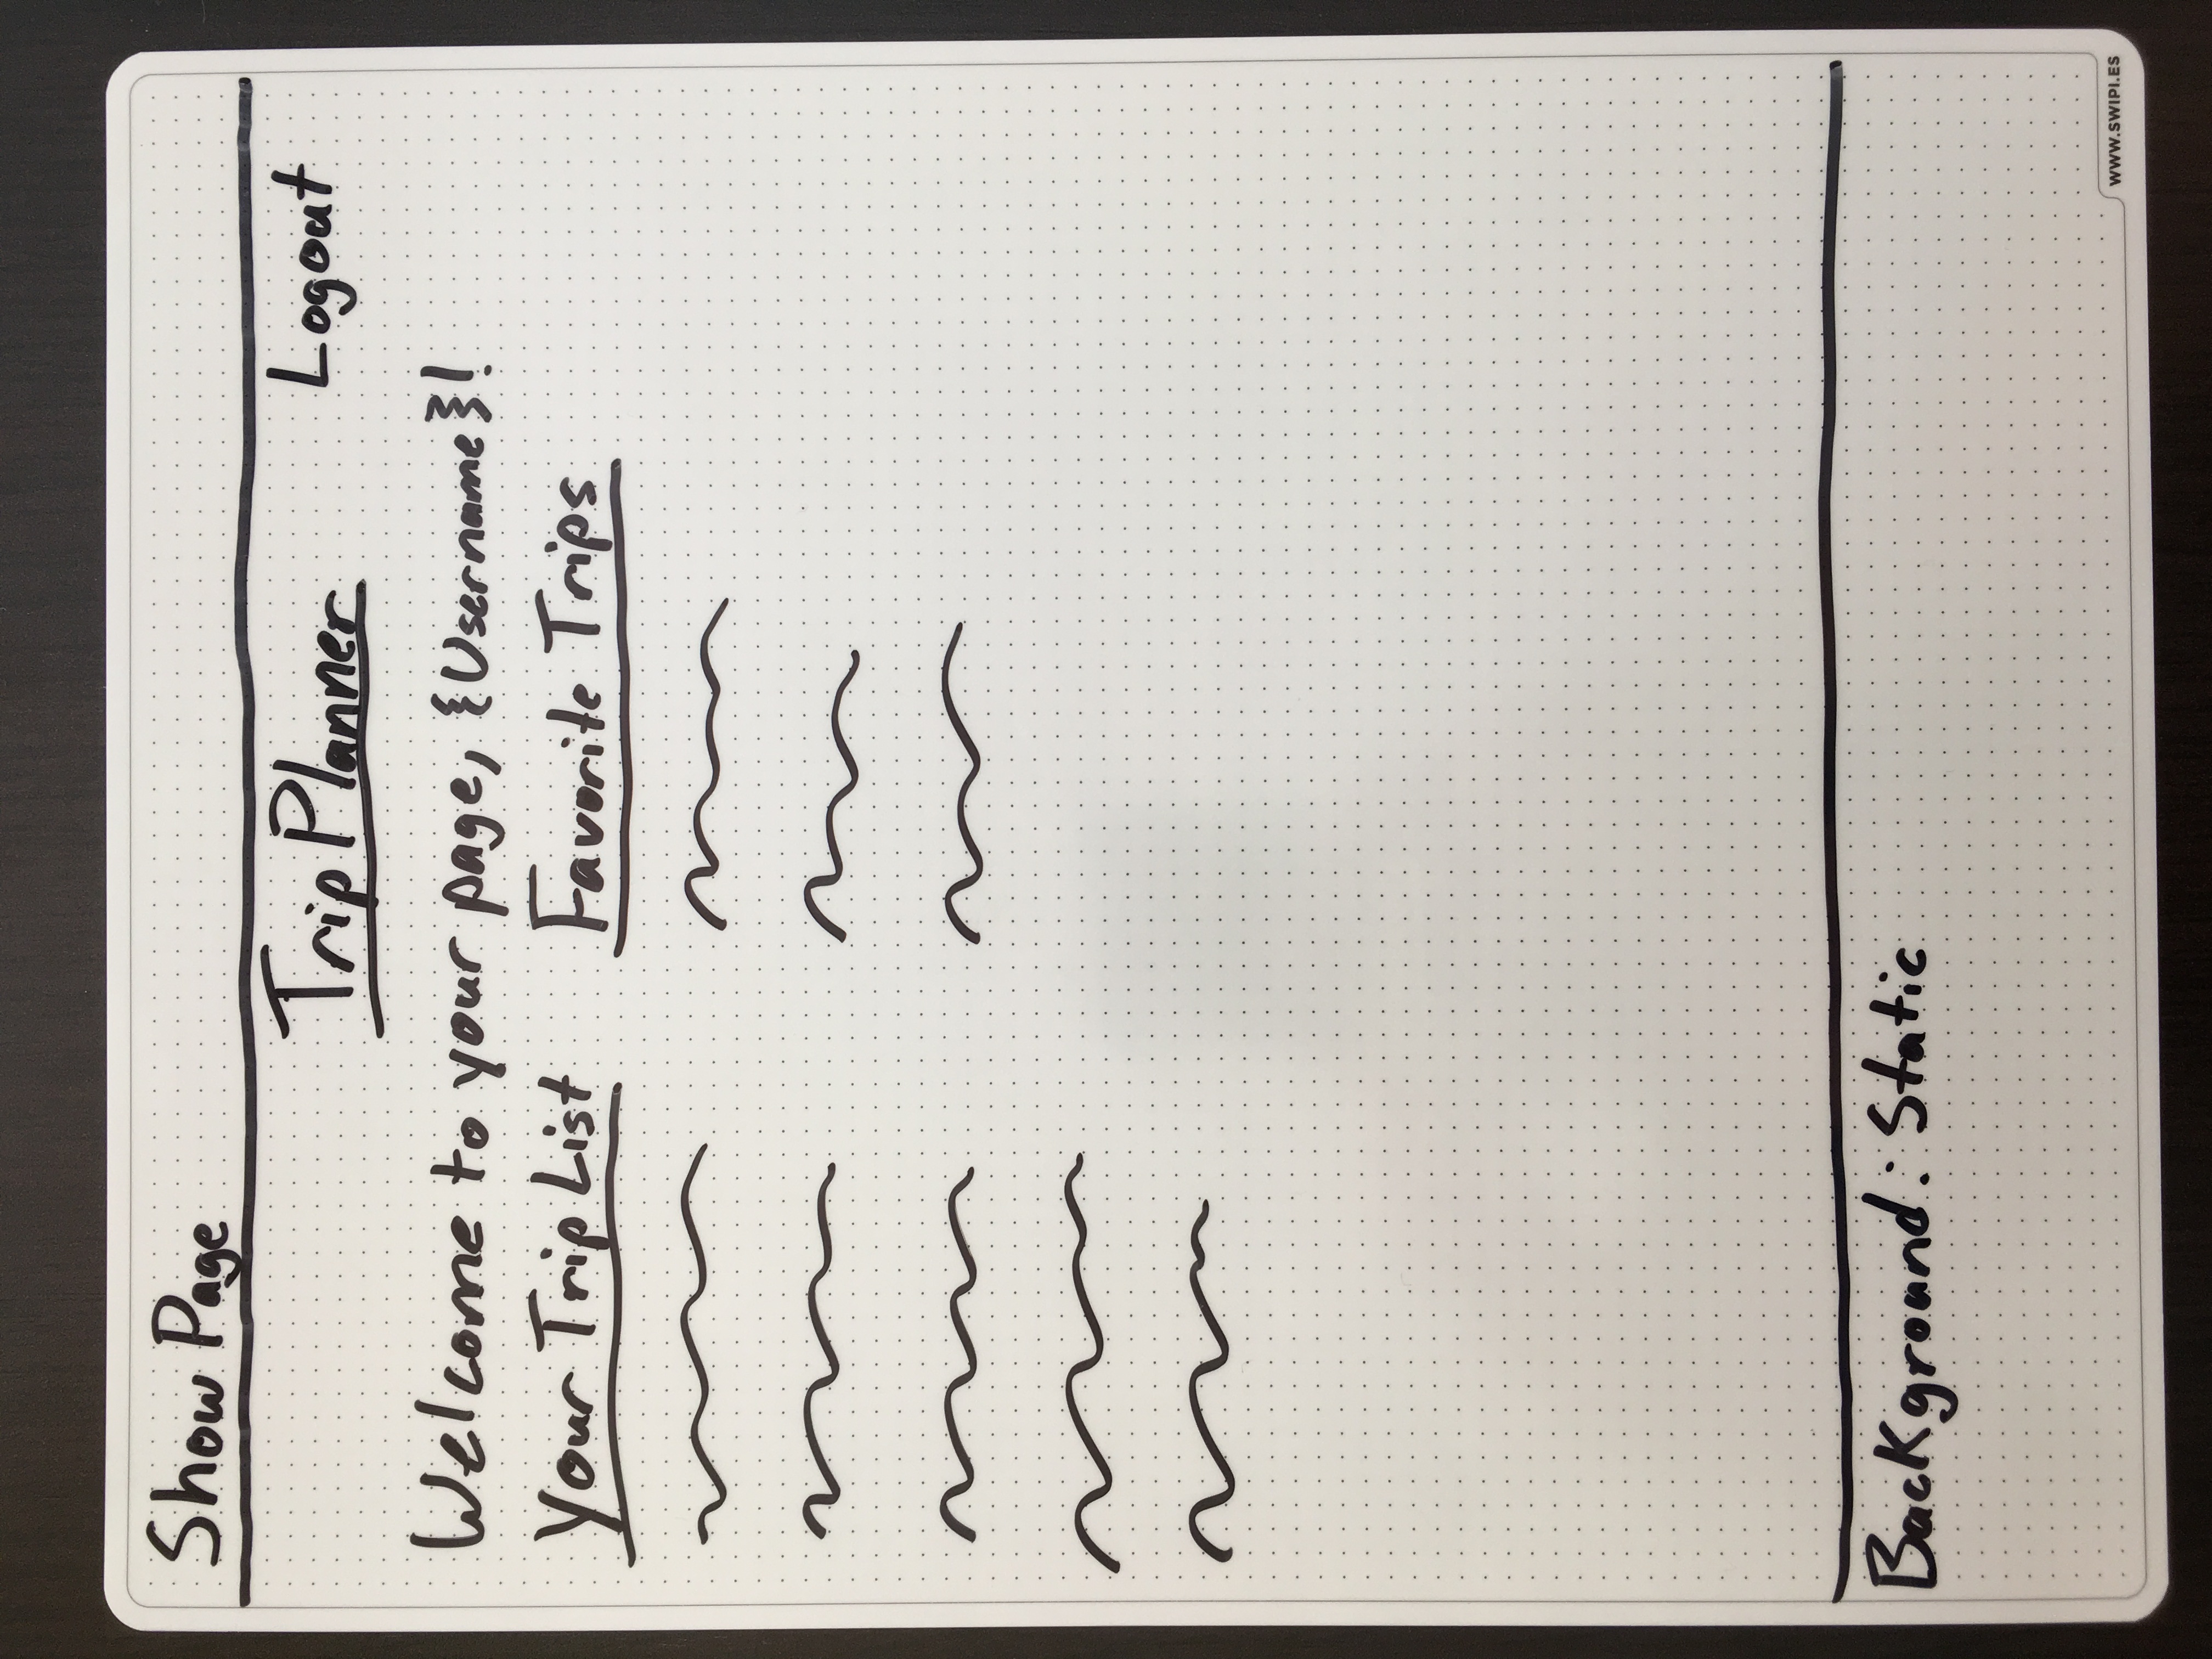 Show Page
Trip Planner
Logout
Welcome to your page, {Username}!
Your Trip List
Favorite Trips
Background: Static
WWW.SWIPI.ES